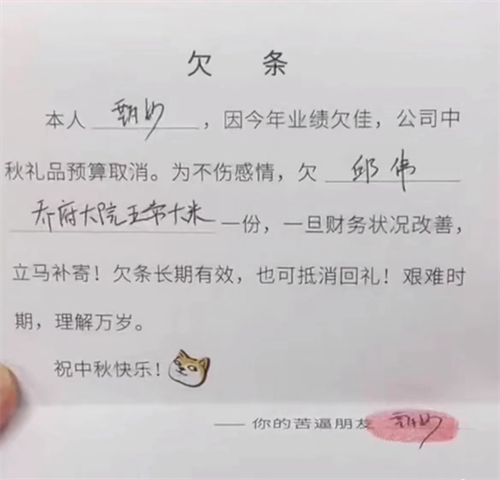 欠 条
本人 ，因今年业绩欠佳，公司中
秋礼品预算取消。为不伤感情，欠 邱伟
乔府大院五常大米一份，一旦财务状况改善，
立马补寄！欠条长期有效，也可抵消回礼！艰难时
期，理解万岁。
祝中秋快乐！
——你的苦逼朋友